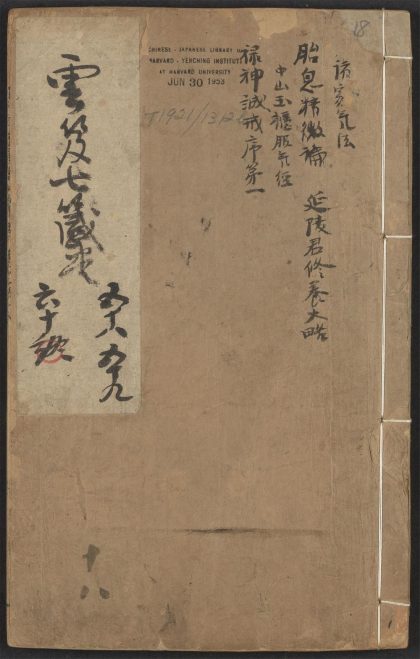 18
諸家気法
胎息精微論 延陵君修養大略
中山玉櫃服気経
禄神誡戒序第一
CHINESE - JAPANESE LIBRARY OF
HARVARD - YENCHING INSTITUTE
AT HARVARD UNIVERSITY
JUN 30 1953
T1921/1312
雲笈七籤
五十八 五十九
六十
十八